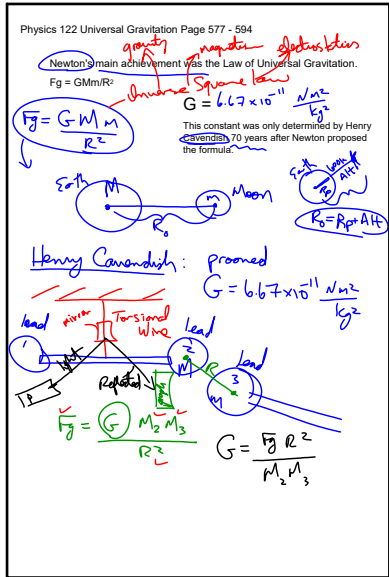 Physics 122 Universal Gravitation Page 577 - 594
gravity magnetism electrostatics
Newton's main achievement was the Law of Universal Gravitation.
Fg = GMm/R²
Inverse Square Law
G = 6.67 x 10⁻¹¹ Nm²/kg²
Fg = GMm/R²
This constant was only determined by Henry
Cavendish 70 years after Newton proposed
the formula.
Earth M m Moon
R₀
Earth Rp AH
R₀ = Rp + AH
Henry Cavendish: prooned
G = 6.67 x 10⁻¹¹ Nm²/kg²
mirror Torsional
Wire
lead 1
Lead 2 M
R
Lead 3 m
light
Reflected
Fg = G M₂ M₃ / R²
G = Fg R² / M₂ M₃